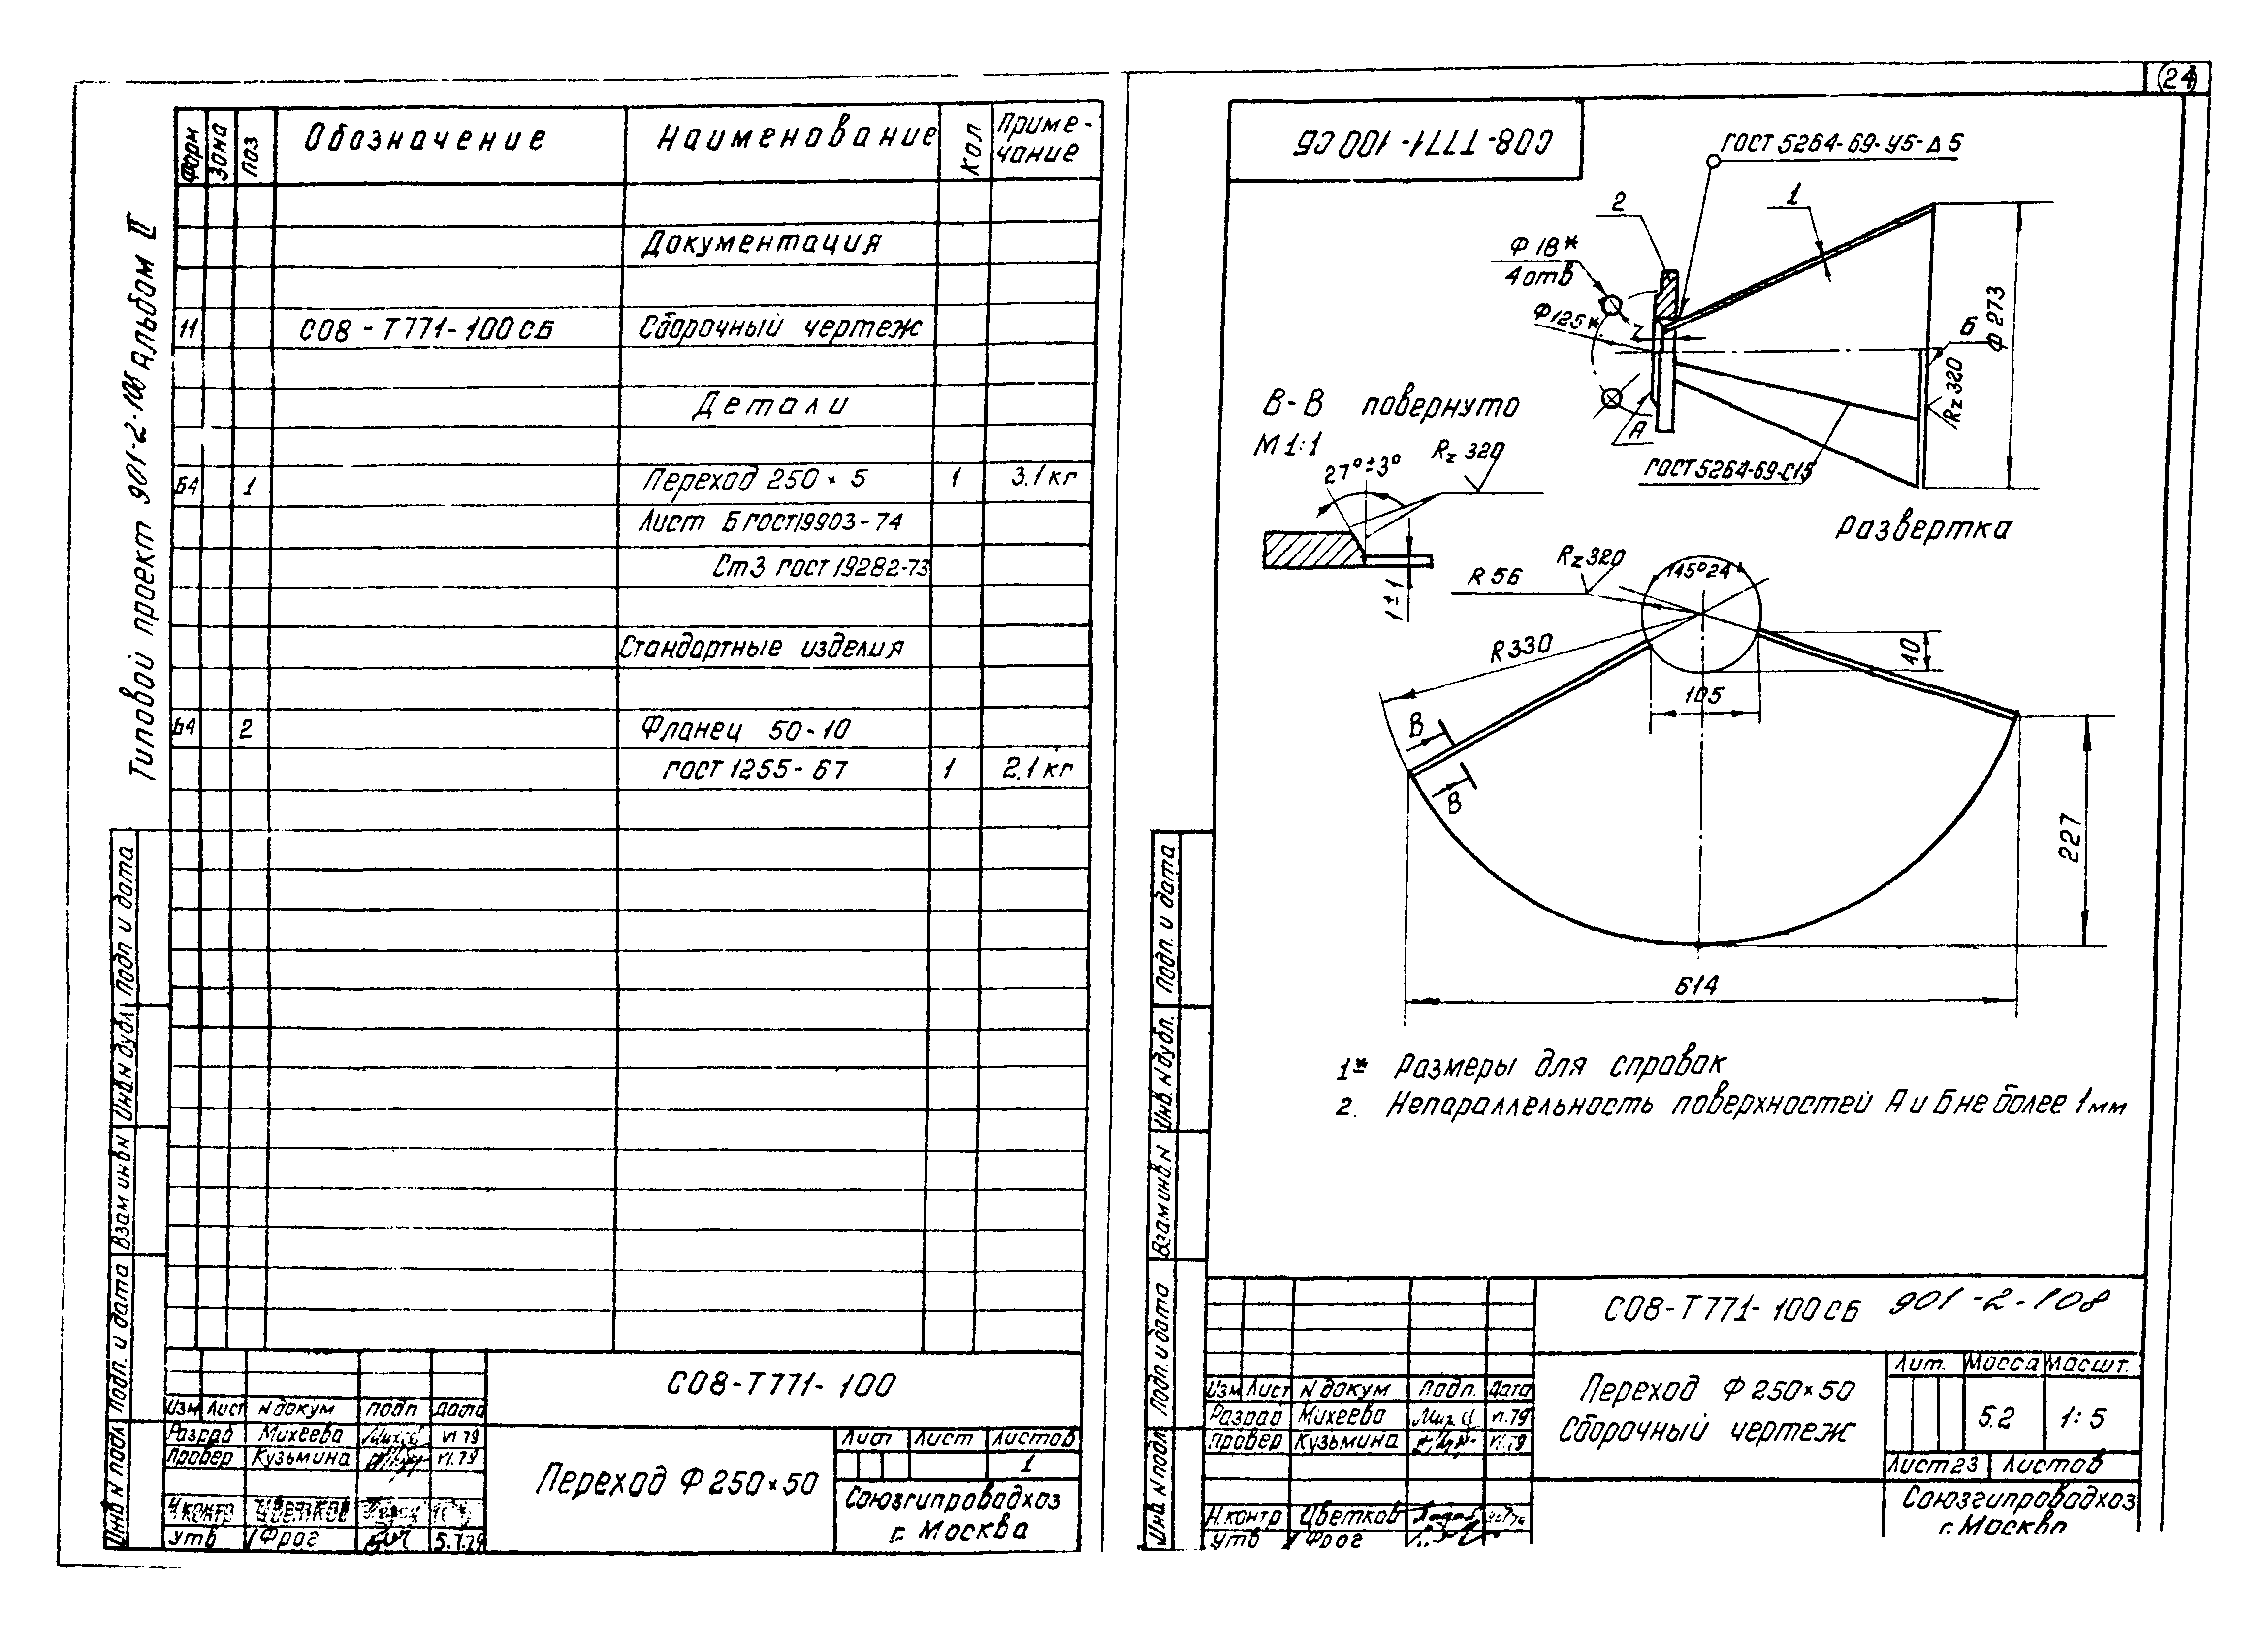 24
Типовой проект 901-2-108 Альбом II
Форм Зона Поз Обозначение Наименование Кол Приме-
чание
Документация
11 С08-Т771-100СБ Сборочный чертеж
Детали
Б4 1 Переход 250×5 1 3.1 кг
Лист Б ГОСТ19903-74
Ст3 ГОСТ 19282-73
Стандартные изделия
Б4 2 Фланец 50-10
ГОСТ 1255-67 1 2.1 кг
Подп и дата
Инв N дубл
Взам инв N
Подп. и дата
Инв N подл
С08-Т771-100
Изм Лист N докум Подп Дата
Разраб Михеева VI.79
Провер Кузьмина VI.79
Н.контр Цветков
Утв Фрог 5.7.79
Переход Ф250×50
Лист Лист Листов
1
Союзгипроводхоз
г. Москва
С08-Т771-100СБ
ГОСТ 5264-69-У5-Δ5
2
1
Ф18*
4отв
Ф125*
7
Ф273
Б
Rz320
А
ГОСТ 5264-69-С15
В-В повернуто
М 1:1
27°±3°
Rz 320
1±1
Развертка
145°24'
Rz320
R56
R330
40
105
В
В
227
614
1* Размеры для справок
2. Непараллельность поверхностей А и Б не более 1мм
Подп. и дата
Инв. N дубл.
Взам инв N
Подп. и дата
Инв N подл
С08-Т771-100СБ 901-2-108
Изм Лист N докум Подп. Дата
Разраб Михеева VI.79
Провер Кузьмина VI.79
Н.контр Цветков
Утв Фрог
Переход Ф250×50
Сборочный чертеж
Лит. Масса Масшт.
5.2 1:5
Лист 23 Листов
Союзгипроводхоз
г. Москва